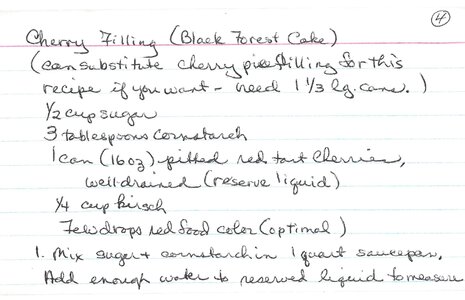 4
Cherry Filling (Black Forest Cake)
(can substitute cherry pie filling for this
recipe if you want - need 1 1/3 lg. cans.)
1/2 cup sugar
3 tablespoons cornstarch
1 can (16 oz) pitted red tart cherries,
well drained (reserve liquid)
1/4 cup kirsch
Few drops red food color (optional)
1. Mix sugar + cornstarch in 1 quart saucepan.
Add enough water to reserved liquid to measure